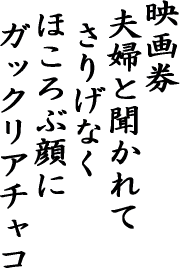 映画券
夫婦と聞かれて
さりげなく
ほころぶ顔に
ガックリアチャコ